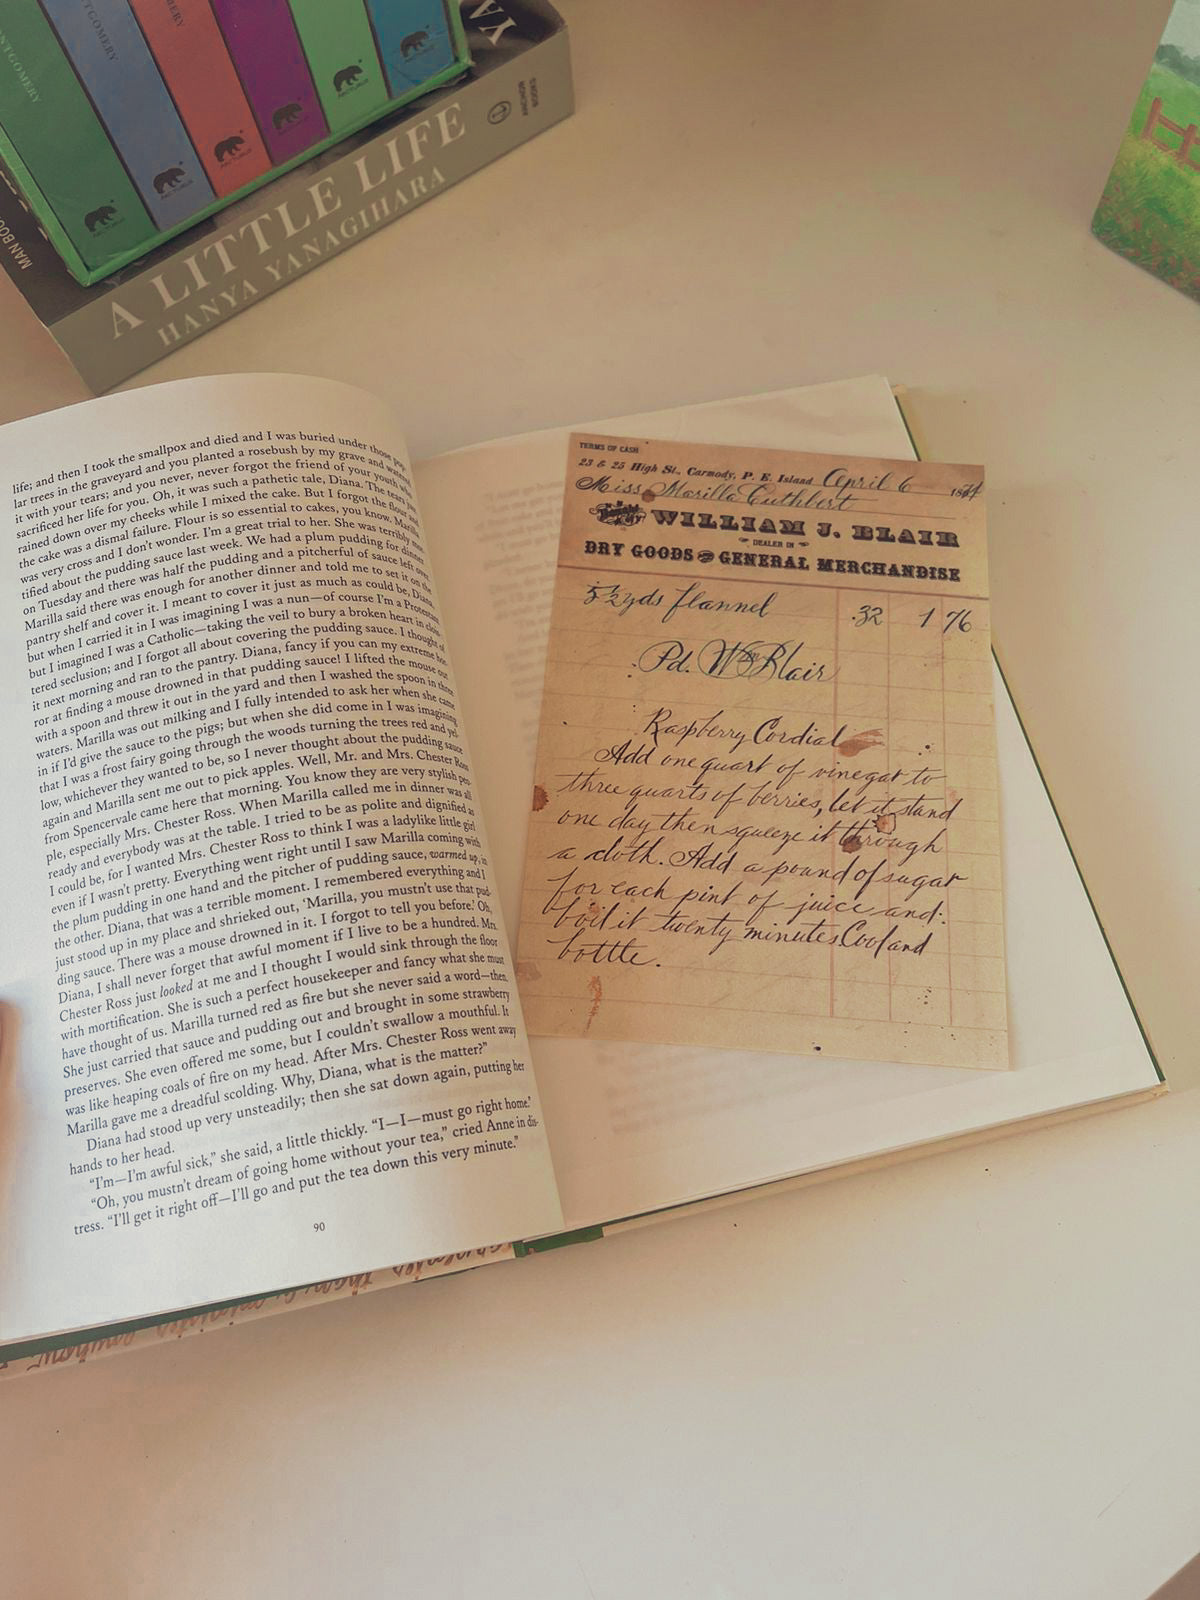 MONTGOMERY
ARCTURUS
ARCTURUS
ARCTURUS
ARCTURUS
MAN BOO
A LITTLE LIFE
HANYA YANAGIHARA
YA
ANCHOR
BOOKS
life; and then I took the smallpox and died and I was buried under those pop-
lar trees in the graveyard and you planted a rosebush by my grave and watered
it with your tears; and you never, never forgot the friend of your youth who
sacrificed her life for you. Oh, it was such a pathetic tale, Diana. The tears just
rained down over my cheeks while I mixed the cake. But I forgot the flour and
the cake was a dismal failure. Flour is so essential to cakes, you know. Marilla
was very cross and I don't wonder. I'm a great trial to her. She was terribly mor-
tified about the pudding sauce last week. We had a plum pudding for dinner
on Tuesday and there was half the pudding and a pitcherful of sauce left over.
Marilla said there was enough for another dinner and told me to set it on the
pantry shelf and cover it. I meant to cover it just as much as could be, Diana,
but when I carried it in I was imagining I was a nun—of course I'm a Protestant
but I imagined I was a Catholic—taking the veil to bury a broken heart in clois-
tered seclusion; and I forgot all about covering the pudding sauce. I thought of
it next morning and ran to the pantry. Diana, fancy if you can my extreme hor-
ror at finding a mouse drowned in that pudding sauce! I lifted the mouse out
with a spoon and threw it out in the yard and then I washed the spoon in three
waters. Marilla was out milking and I fully intended to ask her when she came
in if I'd give the sauce to the pigs; but when she did come in I was imagining
that I was a frost fairy going through the woods turning the trees red and yel-
low, whichever they wanted to be, so I never thought about the pudding sauce
again and Marilla sent me out to pick apples. Well, Mr. and Mrs. Chester Ross
from Spencervale came here that morning. You know they are very stylish peo-
ple, especially Mrs. Chester Ross. When Marilla called me in dinner was all
ready and everybody was at the table. I tried to be as polite and dignified as
I could be, for I wanted Mrs. Chester Ross to think I was a ladylike little girl
even if I wasn't pretty. Everything went right until I saw Marilla coming with
the plum pudding in one hand and the pitcher of pudding sauce, warmed up, in
the other. Diana, that was a terrible moment. I remembered everything and I
just stood up in my place and shrieked out, 'Marilla, you mustn't use that pud-
ding sauce. There was a mouse drowned in it. I forgot to tell you before.' Oh,
Diana, I shall never forget that awful moment if I live to be a hundred. Mrs.
Chester Ross just looked at me and I thought I would sink through the floor
with mortification. She is such a perfect housekeeper and fancy what she must
have thought of us. Marilla turned red as fire but she never said a word—then.
She just carried that sauce and pudding out and brought in some strawberry
preserves. She even offered me some, but I couldn't swallow a mouthful. It
was like heaping coals of fire on my head. After Mrs. Chester Ross went away
Marilla gave me a dreadful scolding. Why, Diana, what is the matter?"
Diana had stood up very unsteadily; then she sat down again, putting her
hands to her head.
"I'm—I'm awful sick," she said, a little thickly. "I—I—must go right home."
"Oh, you mustn't dream of going home without your tea," cried Anne in dis-
tress. "I'll get it right off—I'll go and put the tea down this very minute."
90
TERMS OF CASH
23 & 25 High St., Carmody, P. E. Island April 6
Miss Marilla Cuthbert
WILLIAM J. BLAIR
DEALER IN
DRY GOODS GENERAL MERCHANDISE
5½ yds flannel .32 1 76
Pd. Wm Blair
Raspberry Cordial
Add one quart of vinegar to
three quarts of berries, let it stand
one day then squeeze it through
a cloth. Add a pound of sugar
for each pint of juice and
boil it twenty minutes Cool and
bottle.